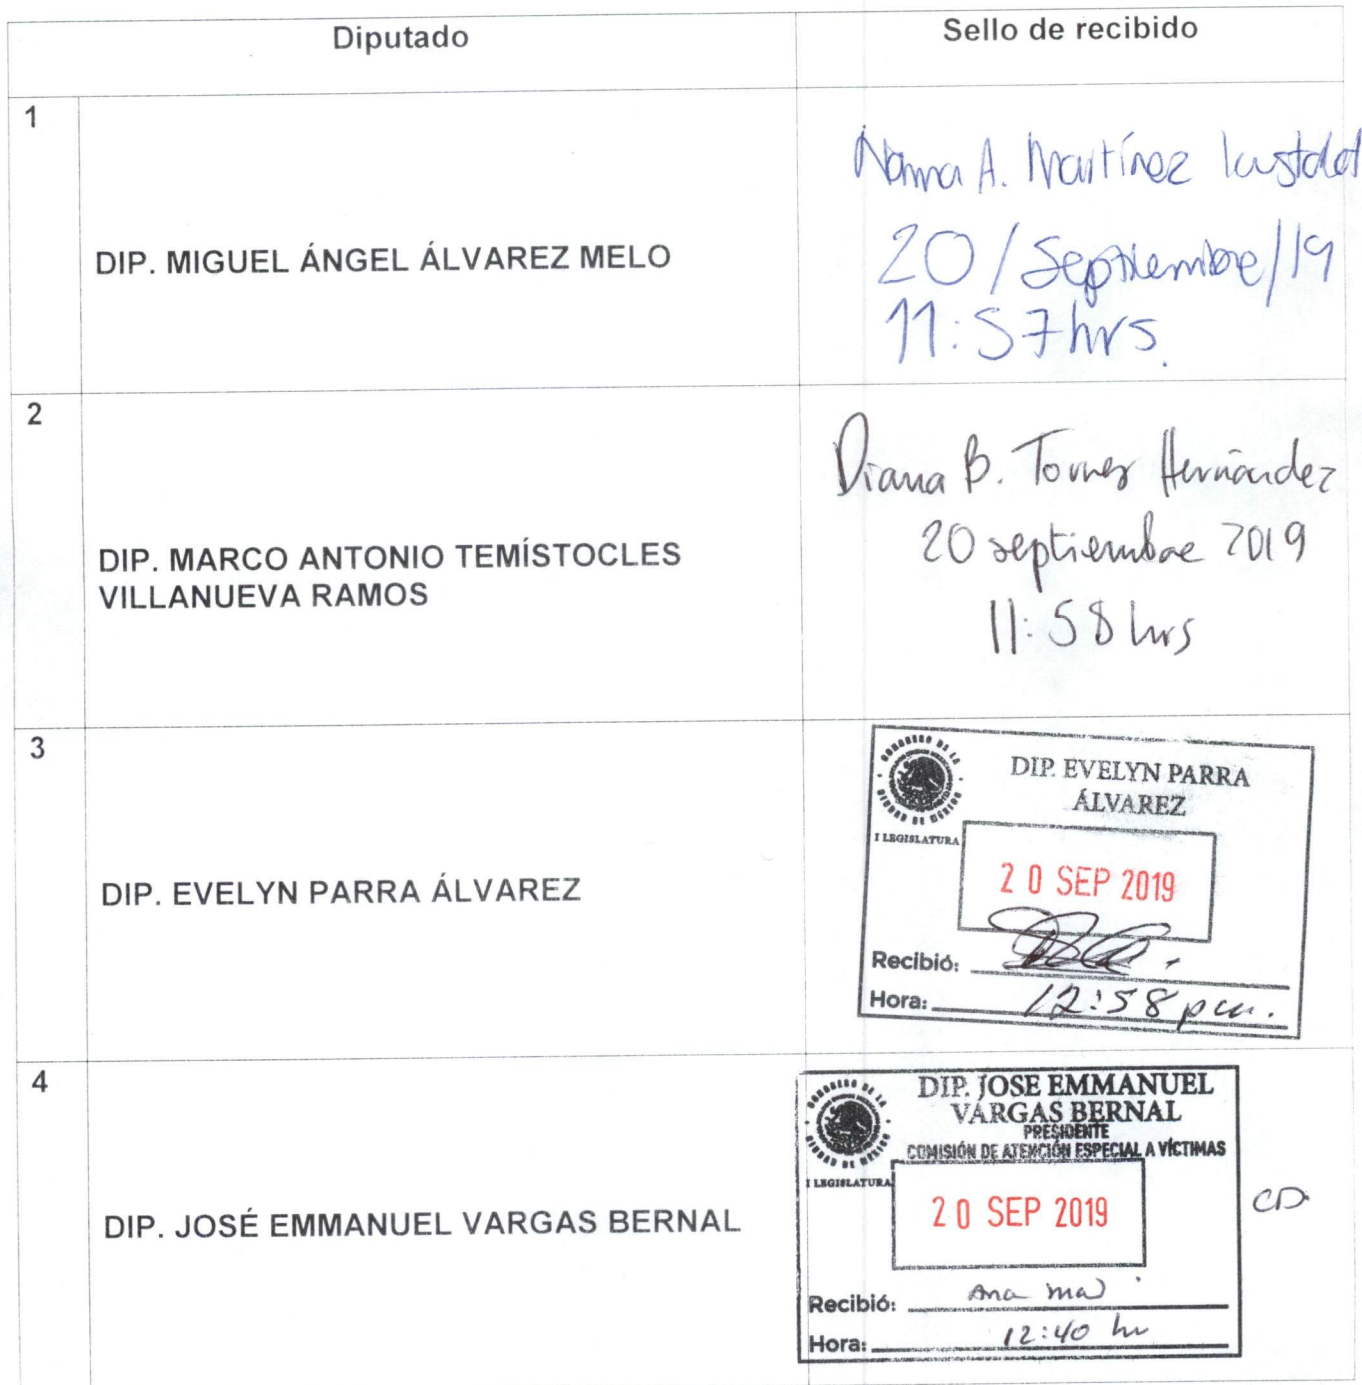 Diputado
Sello de recibido
1
DIP. MIGUEL ÁNGEL ÁLVAREZ MELO
A. Martínez
20/Septiembre/19
11:57hrs.
2
DIP. MARCO ANTONIO TEMÍSTOCLES
VILLANUEVA RAMOS
Diana B. Torres Hernández
20 septiembre 2019
11:58 hrs
3
DIP. EVELYN PARRA ÁLVAREZ
CONGRESO DE LA
CIUDAD DE MÉXICO
I LEGISLATURA
DIP. EVELYN PARRA
ÁLVAREZ
20 SEP 2019
Recibió:
Hora: 12:58 pm.
4
DIP. JOSÉ EMMANUEL VARGAS BERNAL
CONGRESO DE LA
CIUDAD DE MÉXICO
I LEGISLATURA
DIP. JOSE EMMANUEL
VARGAS BERNAL
PRESIDENTE
COMISIÓN DE ATENCIÓN ESPECIAL A VÍCTIMAS
20 SEP 2019
CD
Recibió: Ana
Hora: 12:40 hr